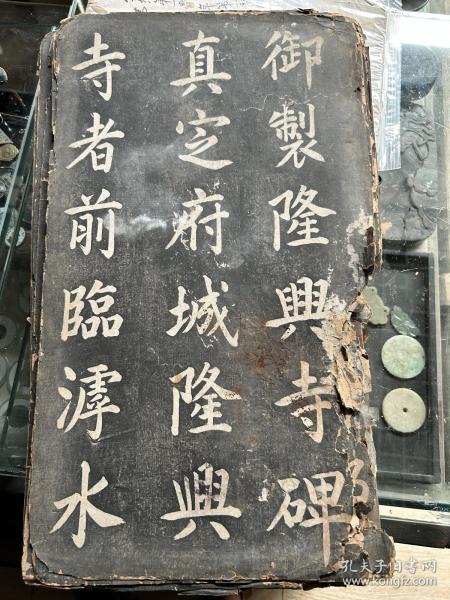 御製隆興寺碑
真定府城隆興
寺者前臨滹水
孔夫子旧书网
www.kongfz.com